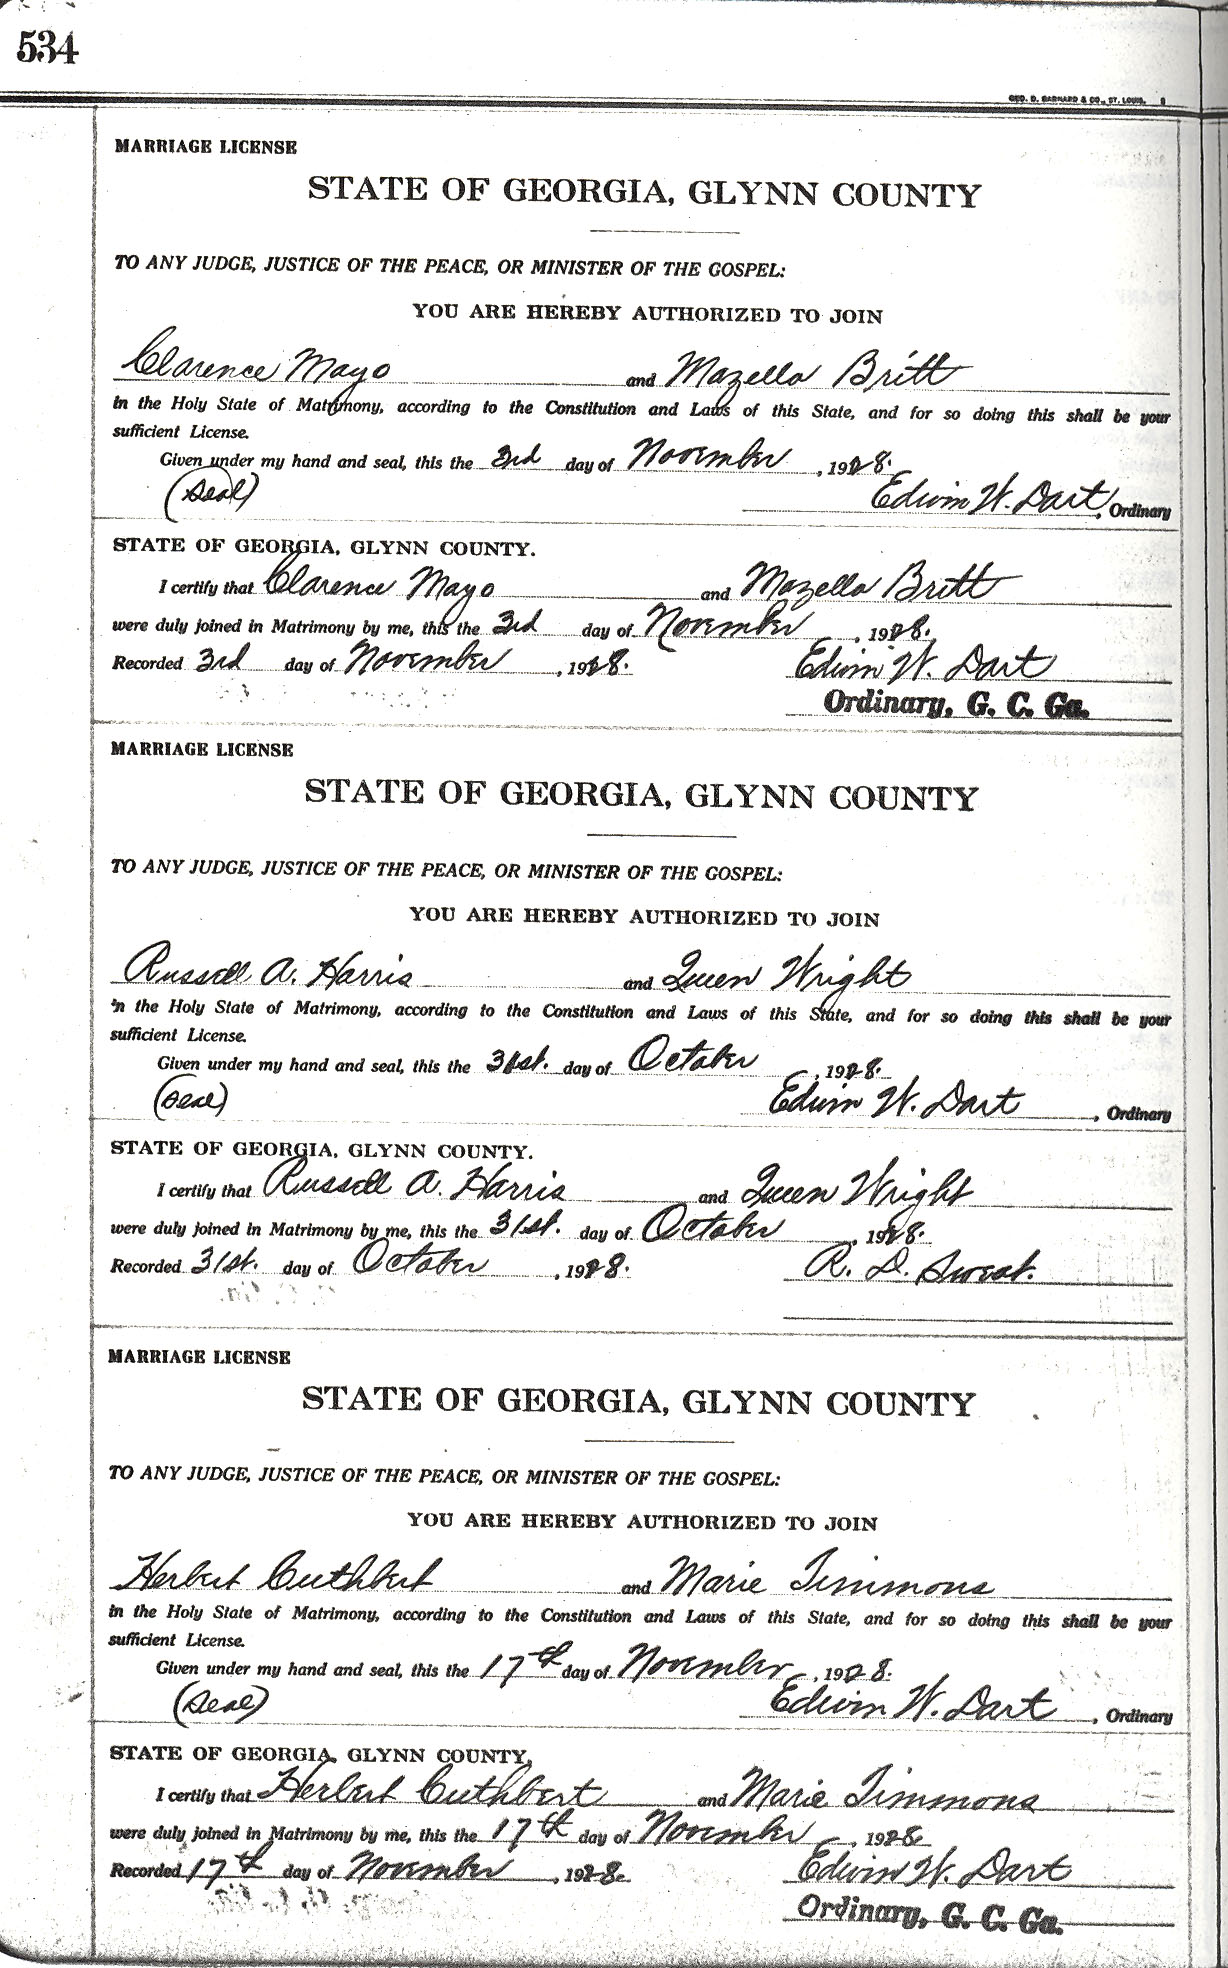 534
GEO. D. BARNARD & CO., ST. LOUIS.
MARRIAGE LICENSE
STATE OF GEORGIA, GLYNN COUNTY
TO ANY JUDGE, JUSTICE OF THE PEACE, OR MINISTER OF THE GOSPEL:
YOU ARE HEREBY AUTHORIZED TO JOIN
Clarence Mayo and Mozella Britt
in the Holy State of Matrimony, according to the Constitution and Laws of this State, and for so doing this shall be your
sufficient License.
Given under my hand and seal, this the 3rd day of November, 1928.
(Seal) Edwin W. Dart, Ordinary
STATE OF GEORGIA, GLYNN COUNTY.
I certify that Clarence Mayo and Mozella Britt
were duly joined in Matrimony by me, this the 3rd day of November, 1928.
Recorded 3rd day of November, 1928. Edwin W. Dart
Ordinary, G. C. Ga.
MARRIAGE LICENSE
STATE OF GEORGIA, GLYNN COUNTY
TO ANY JUDGE, JUSTICE OF THE PEACE, OR MINISTER OF THE GOSPEL:
YOU ARE HEREBY AUTHORIZED TO JOIN
Russell A. Harris and Queen Wright
in the Holy State of Matrimony, according to the Constitution and Laws of this State, and for so doing this shall be your
sufficient License.
Given under my hand and seal, this the 31st. day of October, 1928.
(Seal) Edwin W. Dart, Ordinary
STATE OF GEORGIA, GLYNN COUNTY.
I certify that Russell A. Harris and Queen Wright
were duly joined in Matrimony by me, this the 31st. day of October, 1928.
Recorded 31st. day of October, 1928. R. D. Sweat.
MARRIAGE LICENSE
STATE OF GEORGIA, GLYNN COUNTY
TO ANY JUDGE, JUSTICE OF THE PEACE, OR MINISTER OF THE GOSPEL:
YOU ARE HEREBY AUTHORIZED TO JOIN
Herbert Cuthbert and Marie Timmons
in the Holy State of Matrimony, according to the Constitution and Laws of this State, and for so doing this shall be your
sufficient License.
Given under my hand and seal, this the 17th day of November, 1928.
(Seal) Edwin W. Dart, Ordinary
STATE OF GEORGIA, GLYNN COUNTY,
I certify that Herbert Cuthbert and Marie Timmons
were duly joined in Matrimony by me, this the 17th day of November, 1928.
Recorded 17th day of November, 1928. Edwin W. Dart
Ordinary, G. C. Ga.